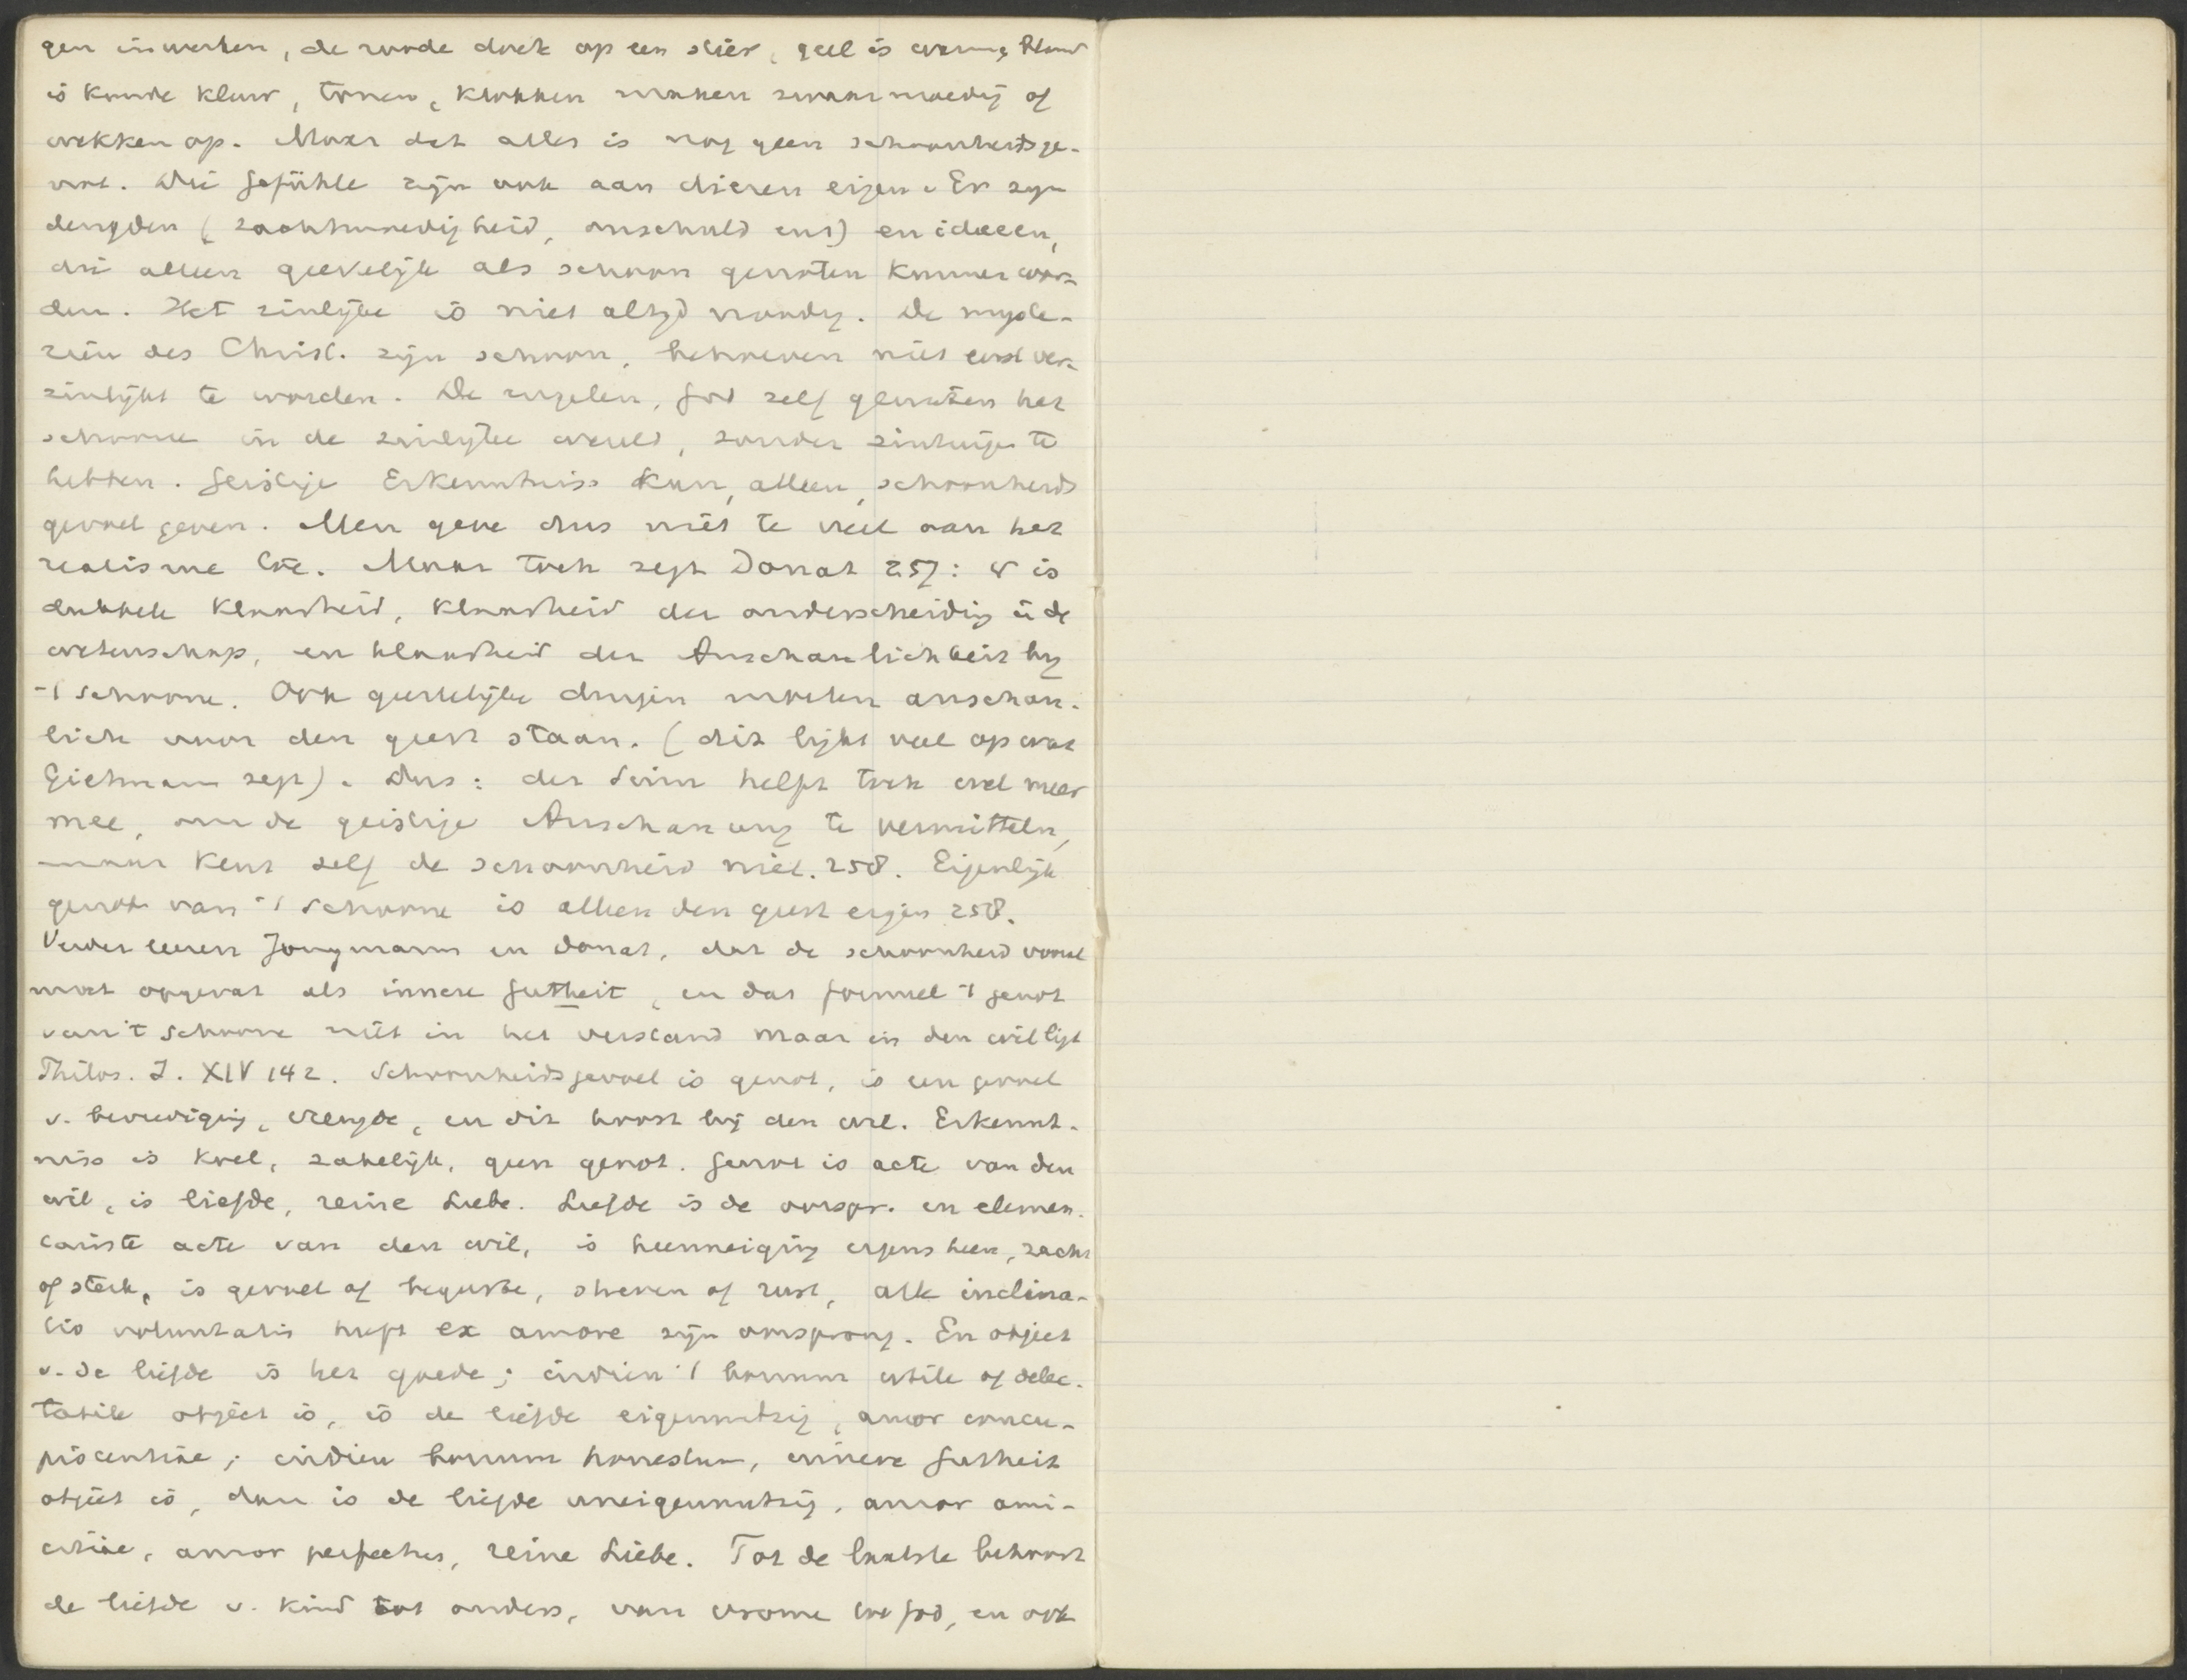 gen inwerken, de roode doek op een stier, geel is warm, blauw
is koude kleur, tonen, klokken maken zwaarmoedig of
wekken op. Maar dat alles is nog geen schoonheidsge-
voel. Die Gefühle zijn ook aan dieren eigen. Er zijn
deugden (zachtmoedigheid, onschuld enz) en ideeen,
die alleen geestelijk als schoon genoten kunnen wor-
den. Het zinlijke is niet altijd noodig. De myste-
riën des Christ. zijn schoon, behoeven niet eerst ver-
zinlijkt te worden. De engelen, God zelf genieten het
schoone in de zinlijke wereld, zonder zintuigen te
hebben. Geistige Erkenntniss kan, alleen, schoonheids
gevoel geven. Men geve dus niet te veel aan het
realisme toe. Maar toch zegt Donat 257: er is
dubbele klaarheid, klaarheid der onderscheiding i/d
wetenschap, en klaarheid der Anschaulichkeit bij
't schoone. Ook geestelijke dingen moeten anschau-
lich voor den geest staan. (dit lijkt veel op wat
Gietmann zegt). Dus: der Sinn helpt toch wel meer
mee, om de geistige Anschauung te vermitteln,
maar kent zelf de schoonheid niet. 258. Eigenlijk
genot van 't schoone is alleen den geest eigen 258.
Verder leeren Jungmann en Donat, dat de schoonheid vooral
moet opgevat als innere Gutheit, en dat formeel 't genot
van 't schoone niet in het verstand maar in den wil ligt
Philos. J. XIV 142. Schoonheidsgevoel is genot, is een gevoel
v. bevrediging, vreugde, en dit hoort bij den wil. Erkennt-
niss is koel, zakelijk, geen genot. Genot is acte van den
wil, is liefde, reine Liebe. Liefde is de oorspr. en elemen-
tairste acte van den wil, is heenneiging ergens heen, zacht
of sterk, is gevoel of begeerte, streven of rust, alle inclina-
tio voluntatis heeft ex amore zijn oorsprong. En object
v. de liefde is het goede; indien 't bonum utile of delec-
tabile object is, is de liefde eigennutzig, amor concu-
piscentiae; indien bonum honestum, innere Gutheit
object is, dan is de liefde uneigennutzig, amor ami-
citiae, amor perfectus, reine Liebe. Tot de laatste behoort
de liefde v. kind tot ouders, van vrome tot God, en ook